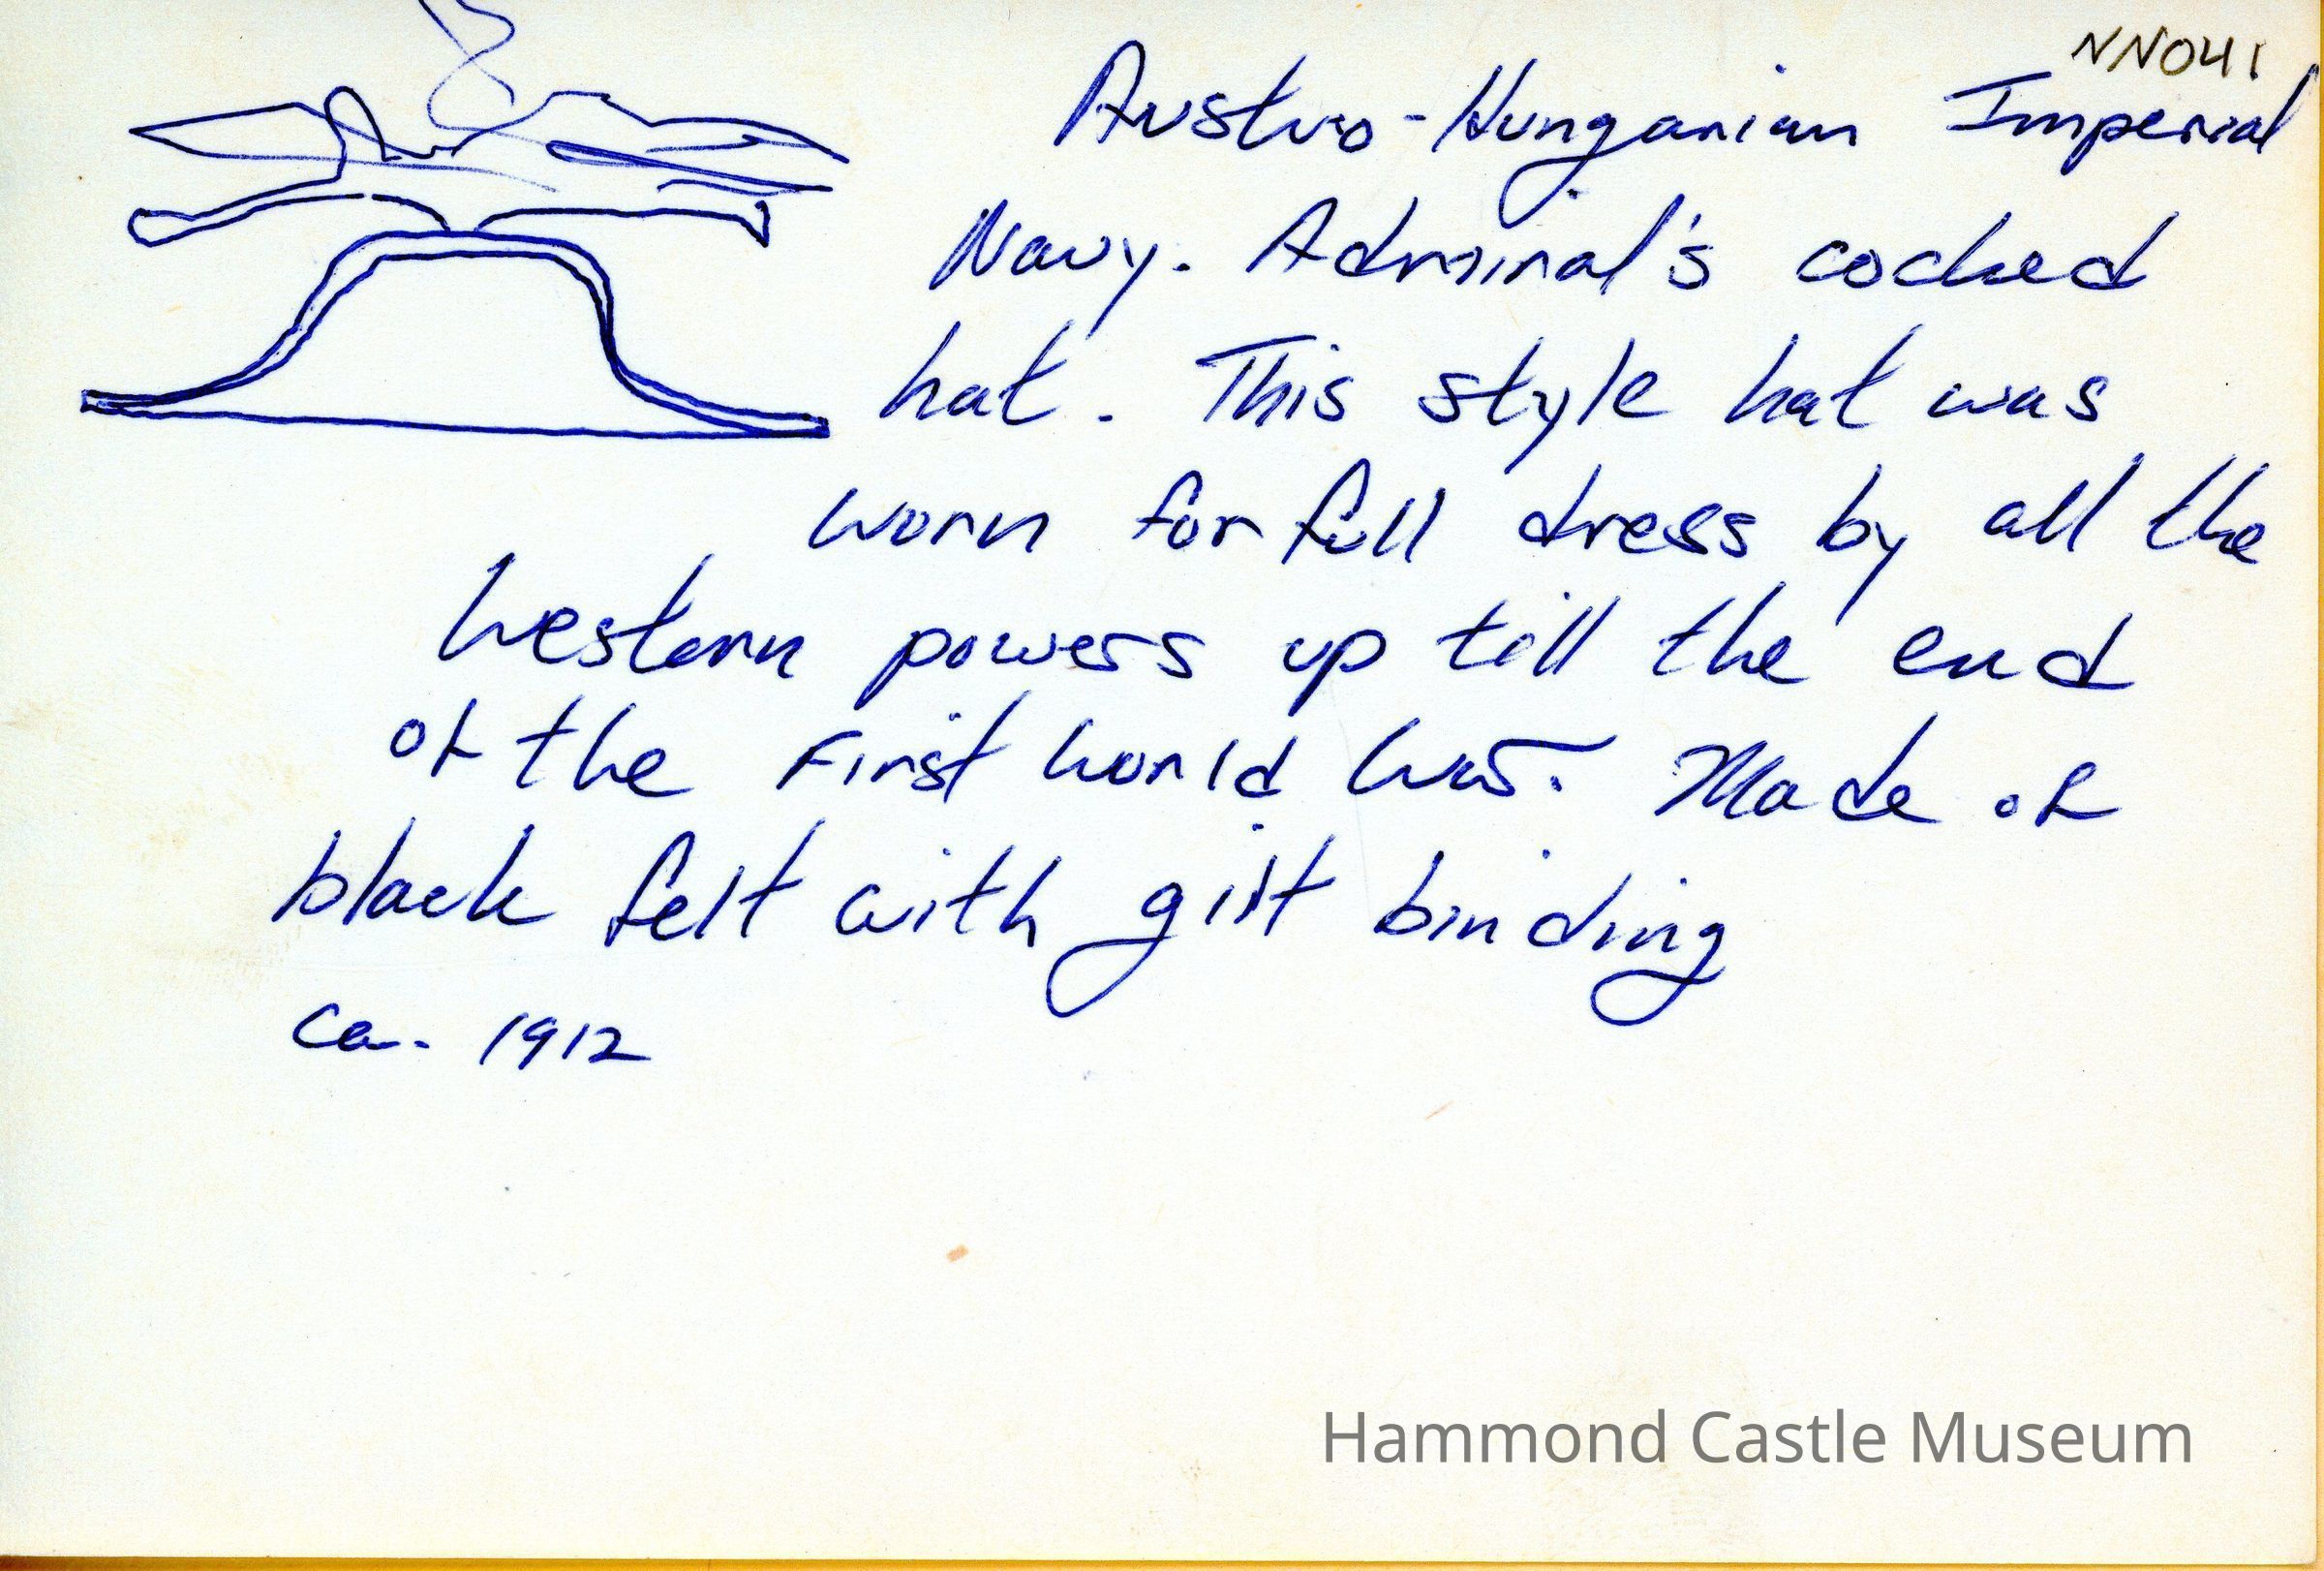 NN041
Austro-Hungarian Imperial
Navy. Admiral's cocked
hat. This style hat was
worn for full dress by all the
Western powers up till the end
of the First World War. Made of
black felt with gilt binding
ca. 1912
Hammond Castle Museum